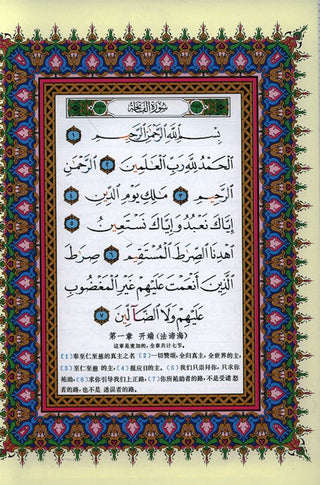 سورة الفاتحة
بِسْمِ ٱللَّهِ ٱلرَّحْمَٰنِ ٱلرَّحِيمِ ١
ٱلْحَمْدُ لِلَّهِ رَبِّ ٱلْعَٰلَمِينَ ٢ ٱلرَّحْمَٰنِ
ٱلرَّحِيمِ ٣ مَٰلِكِ يَوْمِ ٱلدِّينِ ٤
إِيَّاكَ نَعْبُدُ وَإِيَّاكَ نَسْتَعِينُ ٥
ٱهْدِنَا ٱلصِّرَٰطَ ٱلْمُسْتَقِيمَ ٦ صِرَٰطَ
ٱلَّذِينَ أَنْعَمْتَ عَلَيْهِمْ غَيْرِ ٱلْمَغْضُوبِ
عَلَيْهِمْ وَلَا ٱلضَّآلِّينَ ٧
第一章 开端（法谛海）
这章是麦加的，全章共计七节。
〔1〕奉至仁至慈的真主之名〔2〕一切赞颂，全归真主，全世界的主，
〔3〕至仁至慈的主，〔4〕报应日的主。〔5〕我们只崇拜你，只求你
祐助，〔6〕求你引导我们上正路，〔7〕你所祐助者的路，不是受谴怒
者的路，也不是迷误者的路。